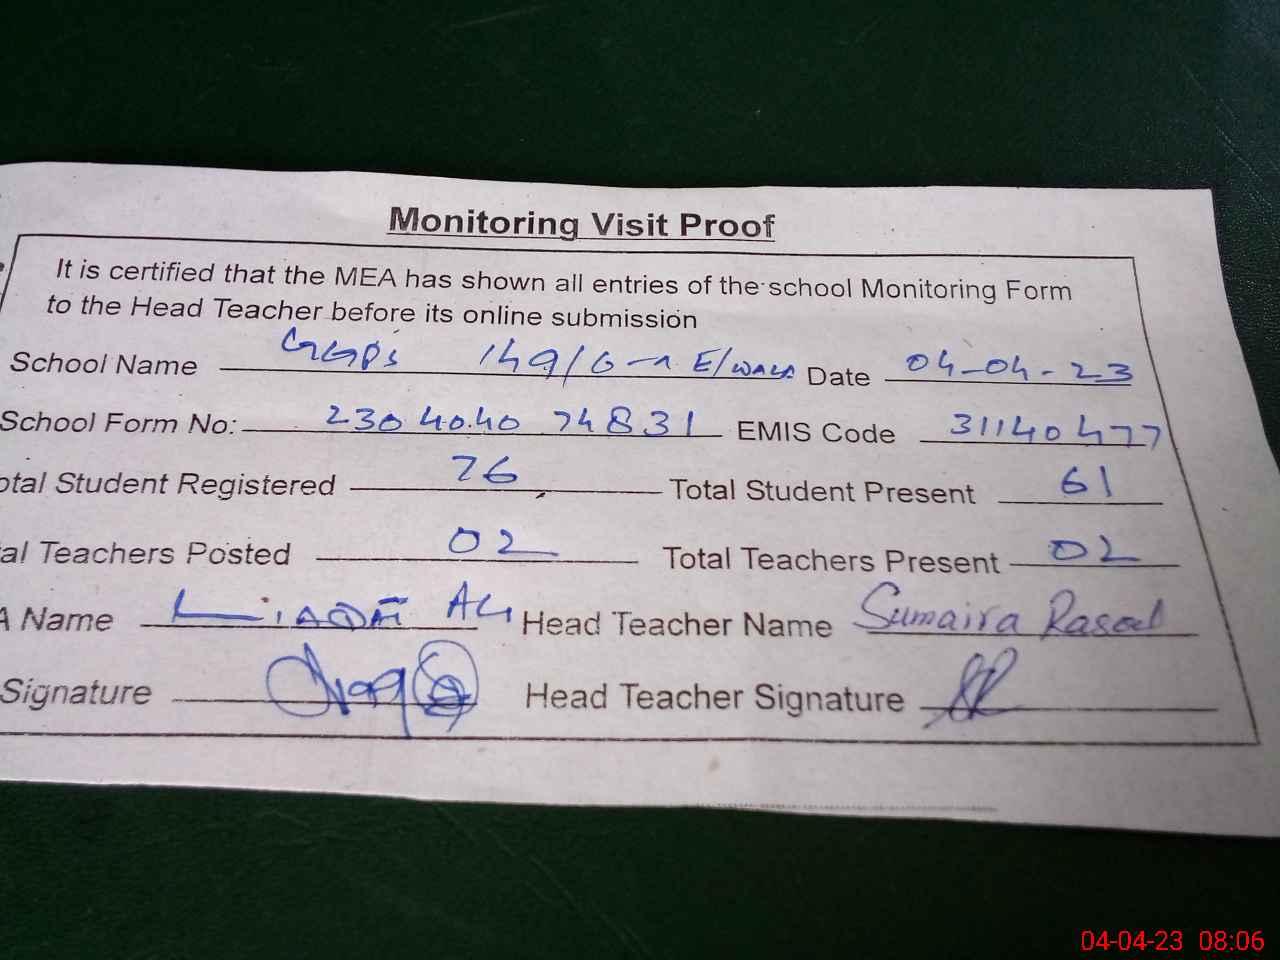 Monitoring Visit Proof
It is certified that the MEA has shown all entries of the school Monitoring Form
to the Head Teacher before its online submission
School Name GGPS 149/6-R E/wala Date 04-04-23
School Form No: 230404074831 EMIS Code 31140477
otal Student Registered 76 Total Student Present 61
al Teachers Posted 02 Total Teachers Present 02
A Name Ali Head Teacher Name Sumaira Rasool
Signature Head Teacher Signature
04-04-23 08:06